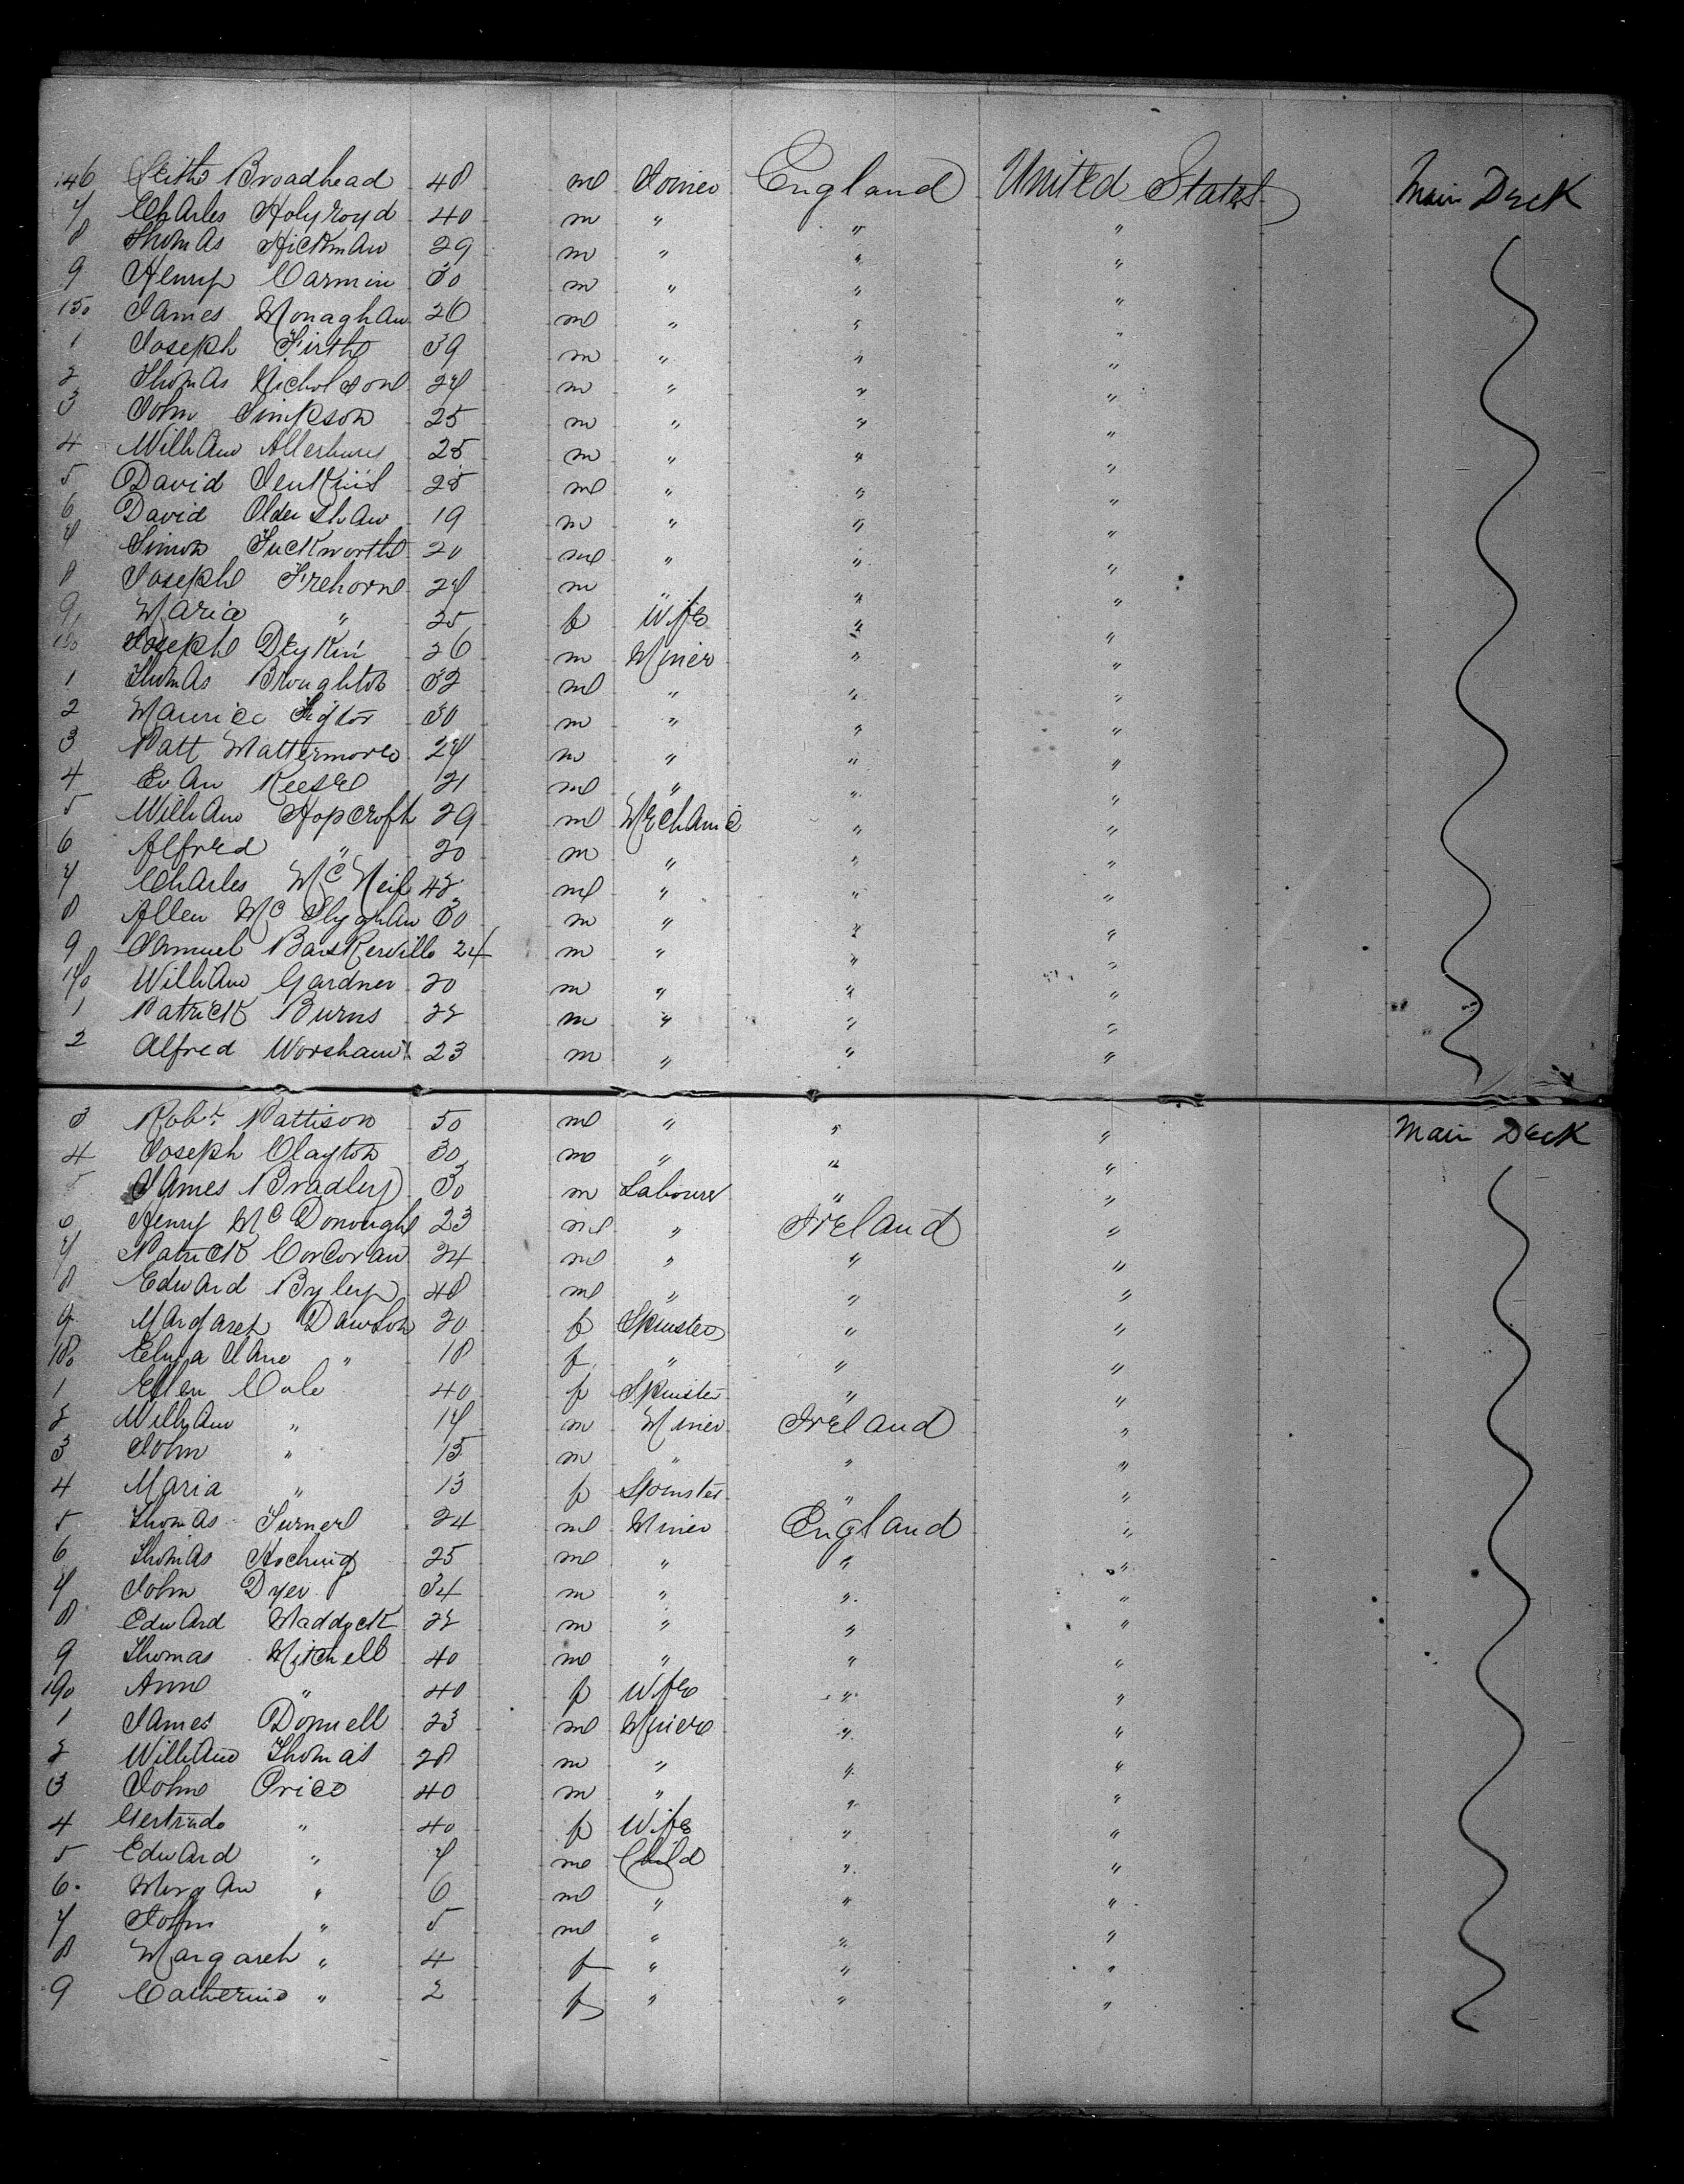 146 Seith Broadhead 48 m Joiner England United States Main Deck
7 Charles Holyroyd 40 m " " "
8 Thomas Hickman 29 m " " "
9 Henry Carmin 30 m " " "
150 James Monaghan 26 m " " "
1 Joseph Firth 39 m " " "
2 Thomas Nicholson 27 m " " "
3 John Simpson 25 m " " "
4 William 25 m " " "
5 David Jenkins 25 m " " "
6 David Oldershaw 19 m " " "
7 Simon Tuckworth 20 m " " "
8 Joseph Firehorne 27 m " " "
9 Maria " 25 f Wife " "
160 Joseph Deykin 26 m Miner " "
1 Thomas Broughton 32 m " " "
2 Maurice 30 m " " "
3 Patt Wattermore 27 m " " "
4 Evan Reese 21 m " " "
5 William Hopcroft 29 m Mechanic " "
6 Alfred " 20 m " " "
7 Charles McNeil 42 m " " "
8 Allen Mc 30 m " " "
9 Samuel Baskerville 24 m " " "
170 William Gardner 20 m " " "
1 Patrick Burns 22 m " " "
2 Alfred Worsham 23 m " " "
3 Robt Pattison 50 m " " " Main Deck
4 Joseph Clayton 30 m " " "
5 James Bradley 30 m Labourer " "
6 Henry McDonough 23 m " Ireland "
7 Patrick Corcoran 24 m " " "
8 Edward Byley 48 m " " "
9 Margaret Dawson 20 f Spinster " "
180 Eliza Jane " 18 f " " "
1 Ellen Cole 40 f Spinster " "
2 William " 17 m Miner Ireland "
3 John " 15 m " " "
4 Maria " 13 f Spinster " "
5 Thomas Turner 24 m Miner England "
6 Thomas Hocking 25 m " " "
7 John Dyer 34 m " " "
8 Edward Maddock 22 m " " "
9 Thomas Mitchell 40 m " " "
190 Anne " 40 f Wife " "
1 James Donnell 23 m Miner " "
2 William Thomas 28 m " " "
3 John Price 40 m " " "
4 Gertrude " 40 f Wife " "
5 Edward " 7 m Child " "
6 Morgan " 6 m " " "
7 John " 5 m " " "
8 Margaret " 4 f " " "
9 Catherine " 2 f " " "